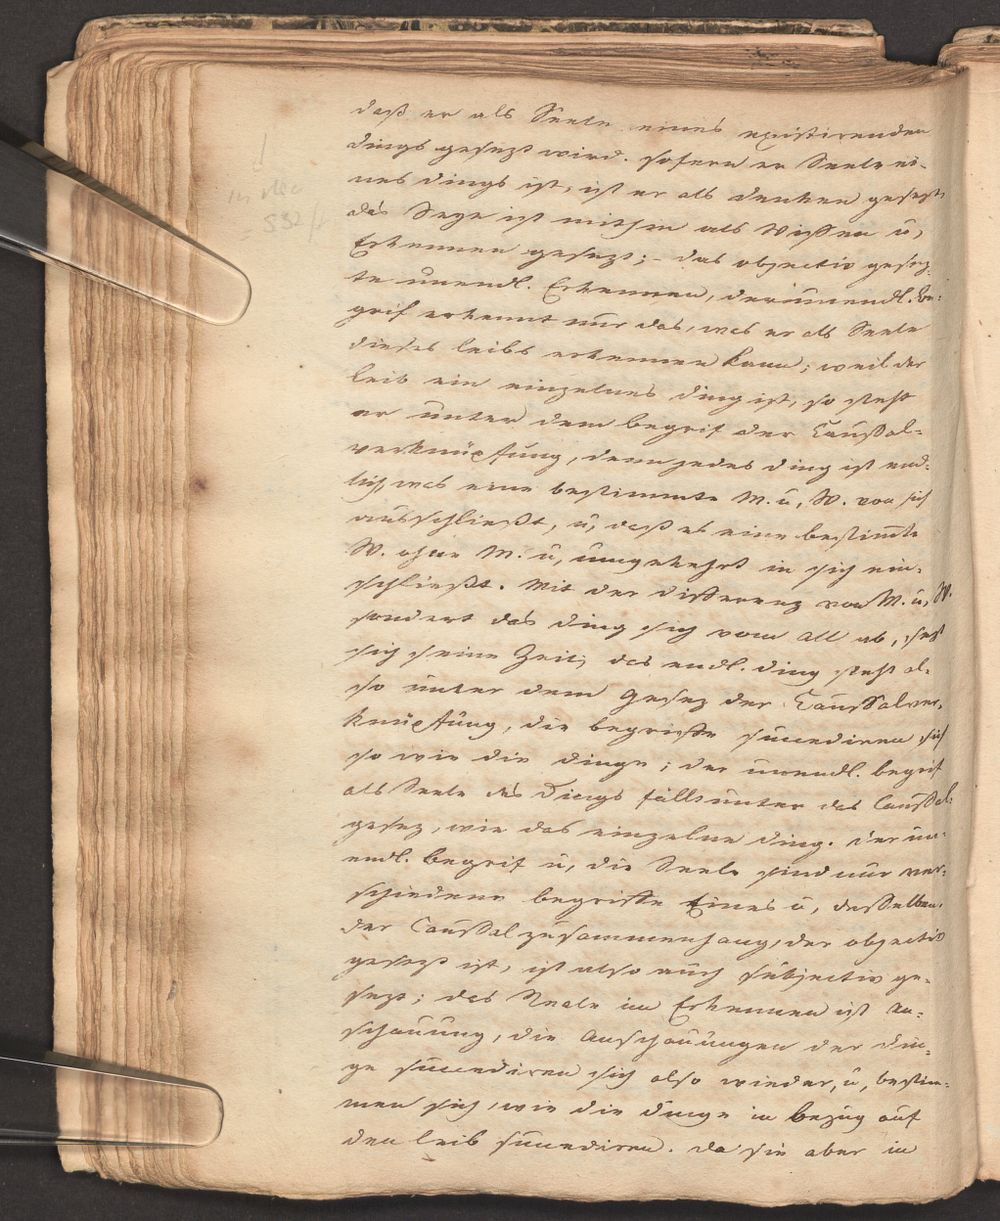 daß er als Seele eines existirenden
dings gesezt wird. sofern er Seele ei-
nes dings ist, ist er als denken gesezt,
das Seyn ist mithin als Wissen u,
Erkennen gesezt; – das objectiv gesez-
te unendl. Erkennen, der unendl. Be-
grif erkennt nur das, was er als Seele
dieses leibs erkennen kann; weil der
leib ein einzelnes ding ist, so steht
er unter dem begrif der Caussal-
verknüpfung, denn jedes ding ist end-
lich, was eine bestimmte M. u, W. von sich
ausschließt, u, daß es eine bestimte
W. ohne M. u, umgekehrt in sich ein-
schließt. Mit der differenz von M. u, W.
sondert das ding sich vom All ab, sezt
sich seine Zeit; das endl. ding steht al-
so unter dem gesez der Caussalver-
knüpfung, die begriffe succediren sich
so wie die dinge; der unendl. begrif
als Seele des dings fällt unter das Caussal-
gesez, wie das einzelne ding. der un-
endl. begrif u, die Seele sind nur ver-
schiedene begriffe Eines u, desselben.
der Caussalzusammenhang, der objectiv
gesezt ist, ist also auch subjectiv ge-
sezt; das Reale im Erkennen ist An-
schauung, die Anschauungen der din-
ge succediren sich also wieder, u, bestim-
men sich, wie die dinge in bezug auf
den leib succediren. da sie aber in